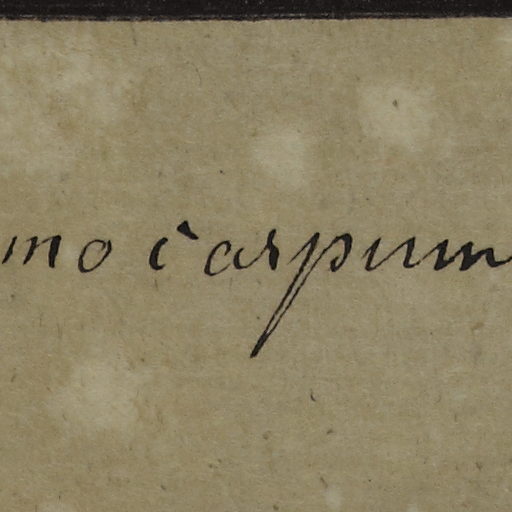 mo carpum